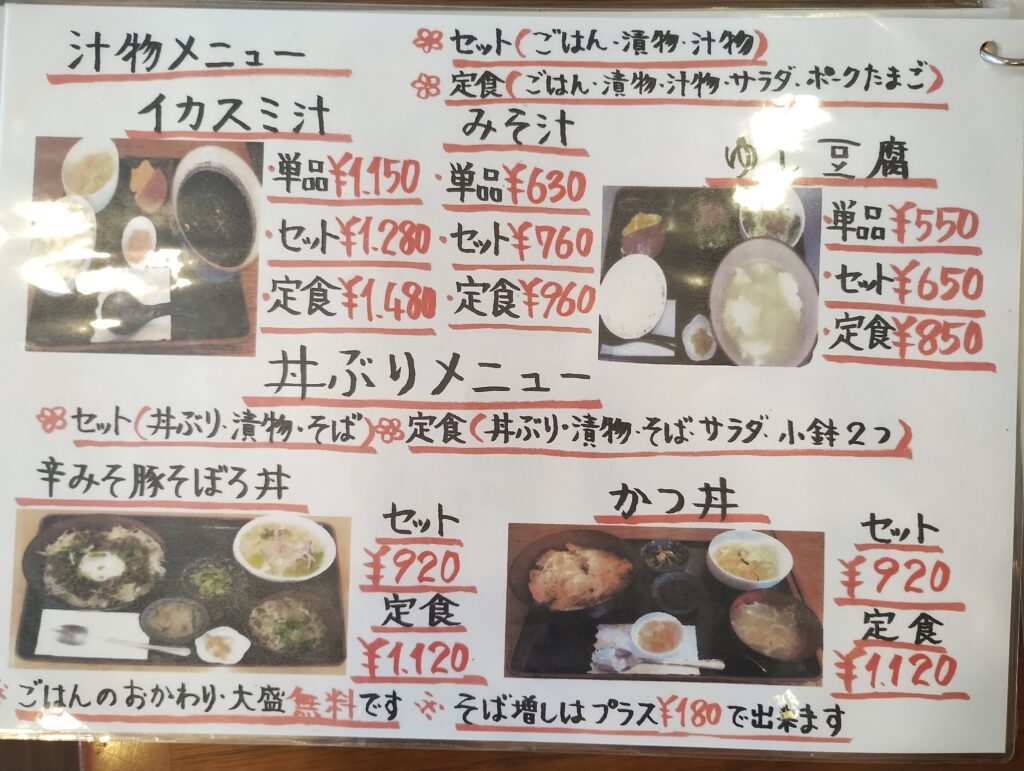 汁物メニュー
セット(ごはん・漬物・汁物)
定食(ごはん・漬物・汁物・サラダ・ポークたまご)
イカスミ汁
単品¥1.150
セット¥1.280
定食¥1.480
みそ汁
・単品¥630
・セット¥760
・定食¥960
ゆし豆腐
・単品¥550
・セット¥650
・定食¥850
丼ぶりメニュー
セット(丼ぶり・漬物・そば)
定食(丼ぶり・漬物・そば・サラダ・小鉢2つ)
辛みそ豚そぼろ丼
セット
¥920
定食
¥1.120
かつ丼
セット
¥920
定食
¥1.120
※ごはんのおかわり・大盛無料です
※そば増しはプラス¥180で出来ます